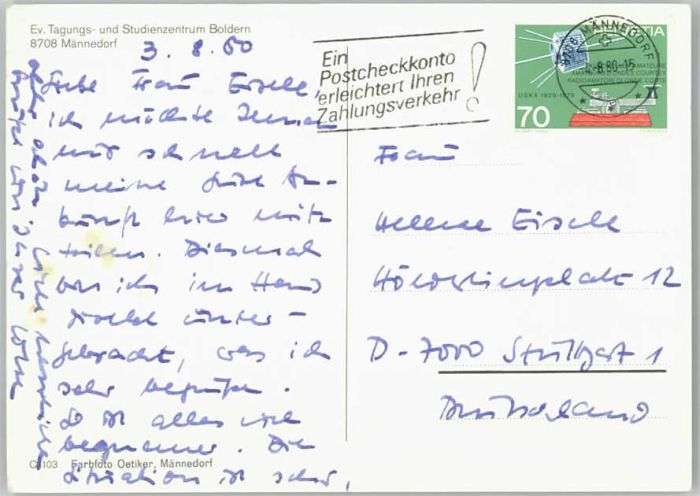 Ev. Tagungs- und Studienzentrum Boldern
8708 Männedorf
3. 8. 80
Liebe Frau Eisele,
ich möchte Ihnen
nur schnell
meine gute An-
kunft hier mit-
teilen. Diesmal
bin ich im Haus
unter-
gebracht, was ich
sehr begrüße.
Es ist alles viel
bequemer. Die
Situation ist sehr,
C 103 Farbfoto Oetiker, Männedorf
Ein
Postcheckkonto
erleichtert Ihren
Zahlungsverkehr!
8708 MÄNNEDORF
.8.80-15
HELVETIA
USKA 1929-1979
70
Frau
Helene Eisele
Hölderlinplatz 12
D-7000 Stuttgart 1
Deutschland